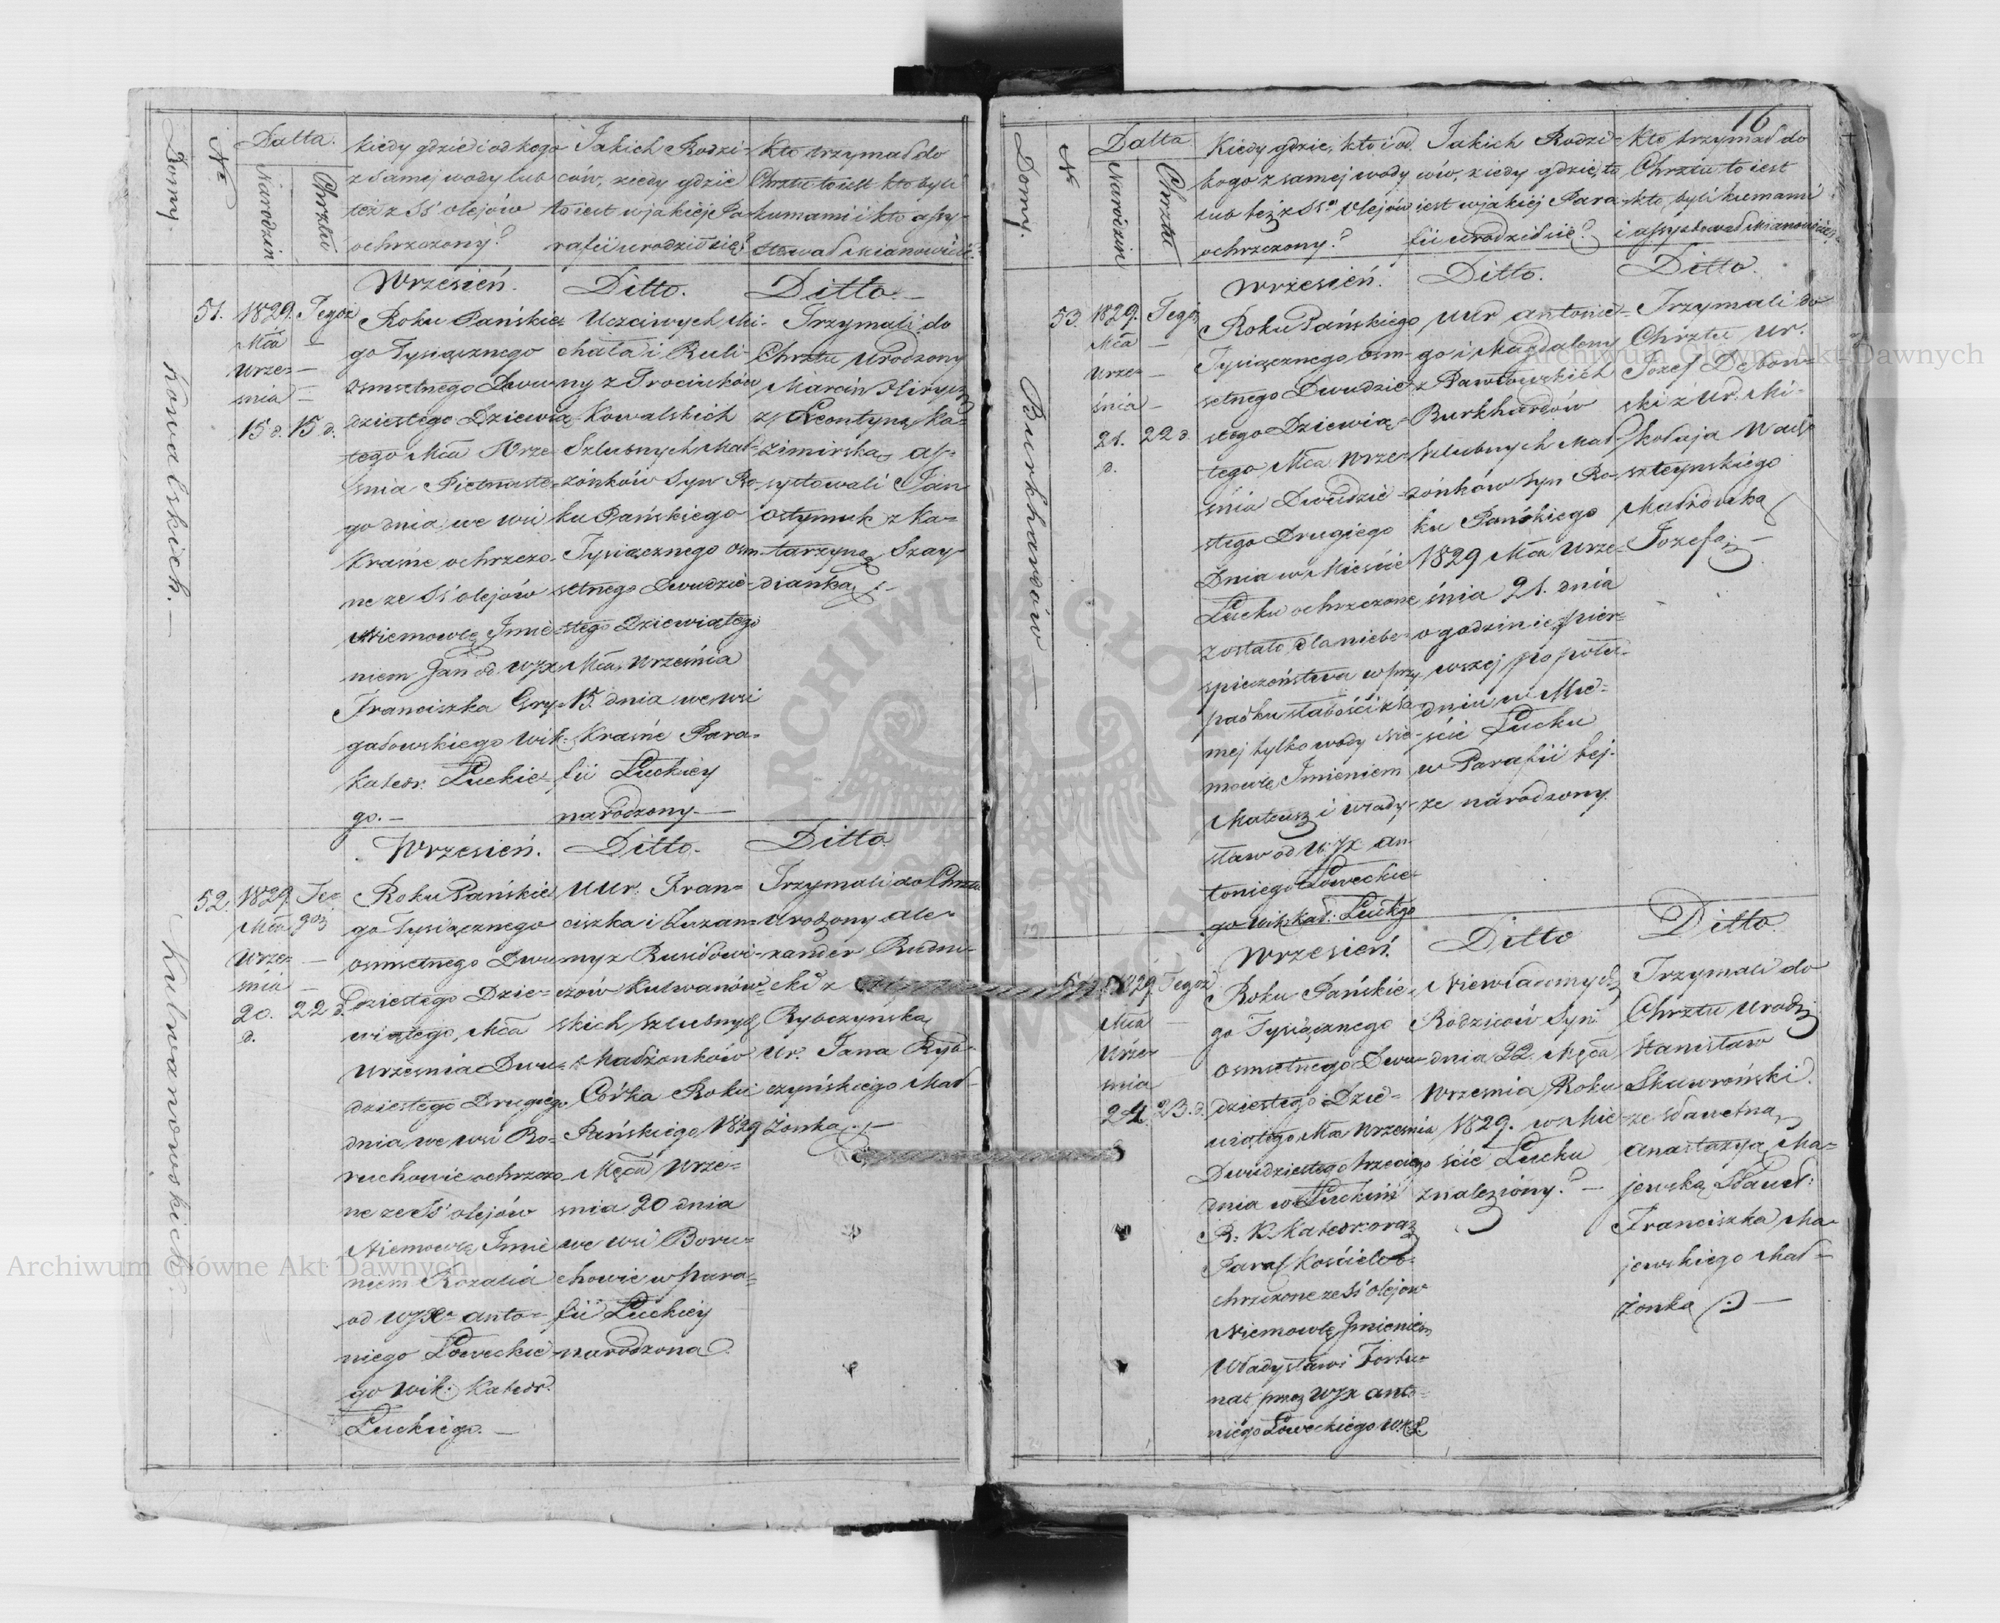 Domy.
Nr
Datta.
Narodzin
Chrztu
Kiedy gdzie i od kogo
z samej wody lub
też z SS olejów
ochrzczony?
Jakich Rodzi-
ców, kiedy gdzie
to iest w jakiéj Pa
rafii urodził się?
Kto trzymał do
Chrztu to iest kto byli
kumami i kto assy-
stował mianowicie?
Kowalskich.—
51.
1829.
Mca
Wrze-
śnia
15 d.
Tegoż
15 d.
Wrzesień.
Roku Pańskie-
go Tysiącznego
Osmsetnego Dwu-
dziestego Dziewią-
tego Mca Wrze
śnia Pietnaste-
go dnia, we wsi
Kraśne ochrzczo-
ne ze SS olejów
Niemowlę Jmie-
niem Jan od WJX
Franciszka Gry-
gałowskiego Wik:
Katedr. Łuckie-
go.—
Ditto.
Uczciwych Mi-
chała i Pauli-
ny z Trociuków
Kowalskich
Szlubnych Mał-
żonków Syn Ro-
ku Pańskiego
Tysiącznego Osm
setnego Dwudzie-
stego Dziewiątego
Mca Września
15. dnia we wsi
Kraśne Para-
fii Łuckiey
narodzony.—
Ditto.—
Trzymali do
Chrztu Urodzony
Marcin
z Leontyną Ka-
zimirską as-
systowali Jan
z Ka-
tarzyną Szay-
dianką.—
Kulwanowskich.—
52.
1829.
Mca
Wrze-
śnia
20.
d.
Te-
goż
22 d.
Wrzesień.
Roku Pańskie
go Tysiącznego
osmsetnego Dwu
dziestego Dzie-
wiątego, Mca
Września Dwu-
dziestego Drugiego
dnia, we wsi Bo-
ruchowie ochrzczo
ne ze SS olejów
Niemowlę Jmie
niem Rozalia
od WJXa Anto-
niego Łoweckie-
go Wik: Katedr.
Łuckiego.—
Ditto.
UUr. Fran-
ciszka i Zuzan-
ny z Rusiłowi-
czów Kulwanow-
skich szlubnych
Małżonków
Córka Roku
Pańskiego 1829
Męca Wrze-
śnia 20 dnia
we wsi Boru-
chowie w Para-
fii Łuckiéy
narodzona.
Ditto
Trzymali do Chrztu
Urodzony Ale-
xander Rudni-
cki z
Rybczynską
Ur. Jana Ryb-
czyńskiego Mał-
żonką.—
16
Domy.
Nr
Datta
Narodzin
Chrztu
Kiedy gdzie, kto i od
kogo z samej wody
lub też z SSo Olejów
ochrzczony?
Jakich Rodzi-
ców, kiedy gdzie, to
iest w jakiéj Para-
fii urodził się?
Kto trzymał do
Chrztu to iest
kto byli kumami
i assystował mianowicie?
Burkhardów—
53.
1829.
Mca
Wrze-
śnia
21.
d.
Tegoż
22 d.
Wrzesień.
Roku Pańskiego
Tysiącznego Osm-
setnego Dwudzie-
stego Dziewią-
tego Mca Wrze-
śnia Dwudzie-
stego Drugiego
Dnia w Mieście
Łucku ochrzczone
zostało, dla niebe-
spieczeństwa w przy
padku słabości z sa-
mej tylko wody Nie-
mowlę Jmieniem
Mateusz i Włady-
sław od WJX An-
toniego Łoweckie-
go Wik. Kat: Łuckgo
Ditto.
UUr Antonie-
go i Magdaleny
z Pawłowskich
Burkhardów
szlubnych Mał-
żonków Syn Ro-
ku Pańskiego
1829 Mca Wrze-
śnia 21. dnia
o godzinie pier-
wszej po połu-
dniu w Mie-
ście Łucku
w Parafii tej-
że narodzony.
Ditto.
Trzymali do
Chrztu Ur.
Jozef
ski z Ur. Mi-
kołaja
Małżonką
Jozefą.—
54.
1829.
Mca
Wrze-
śnia
Tegoż
23. d.
Wrzesień.
Roku Pańskie-
go Tysiącznego
Osmsetnego Dwu-
dziestego Dzie-
wiątego Mca Września
Dwudziestego trzeciego
dnia w Łuckim
R. K. Katedr: oraz
Paraf. Kościele o-
chrzczone ze SS olejów
Niemowlę Jmieniem
Władysław i Fortu-
nat przez WJX Anto-
niego Łoweckiego W.K.Ł
Ditto
Niewiadomych
Rodziców Syn
dnia 22. Męca
Września Roku
1829. w Mie-
ście Łucku
znaleziony?—
Ditto
Trzymali do
Chrztu Urodz
Stanisław
Skawroński
ze Sławetną
Anastazyą Ma-
jewską Sławet:
Franciszka Ma-
jewskiego Mał-
żonką.—
Archiwum Główne Akt Dawnych
Archiwum Główne Akt Dawnych